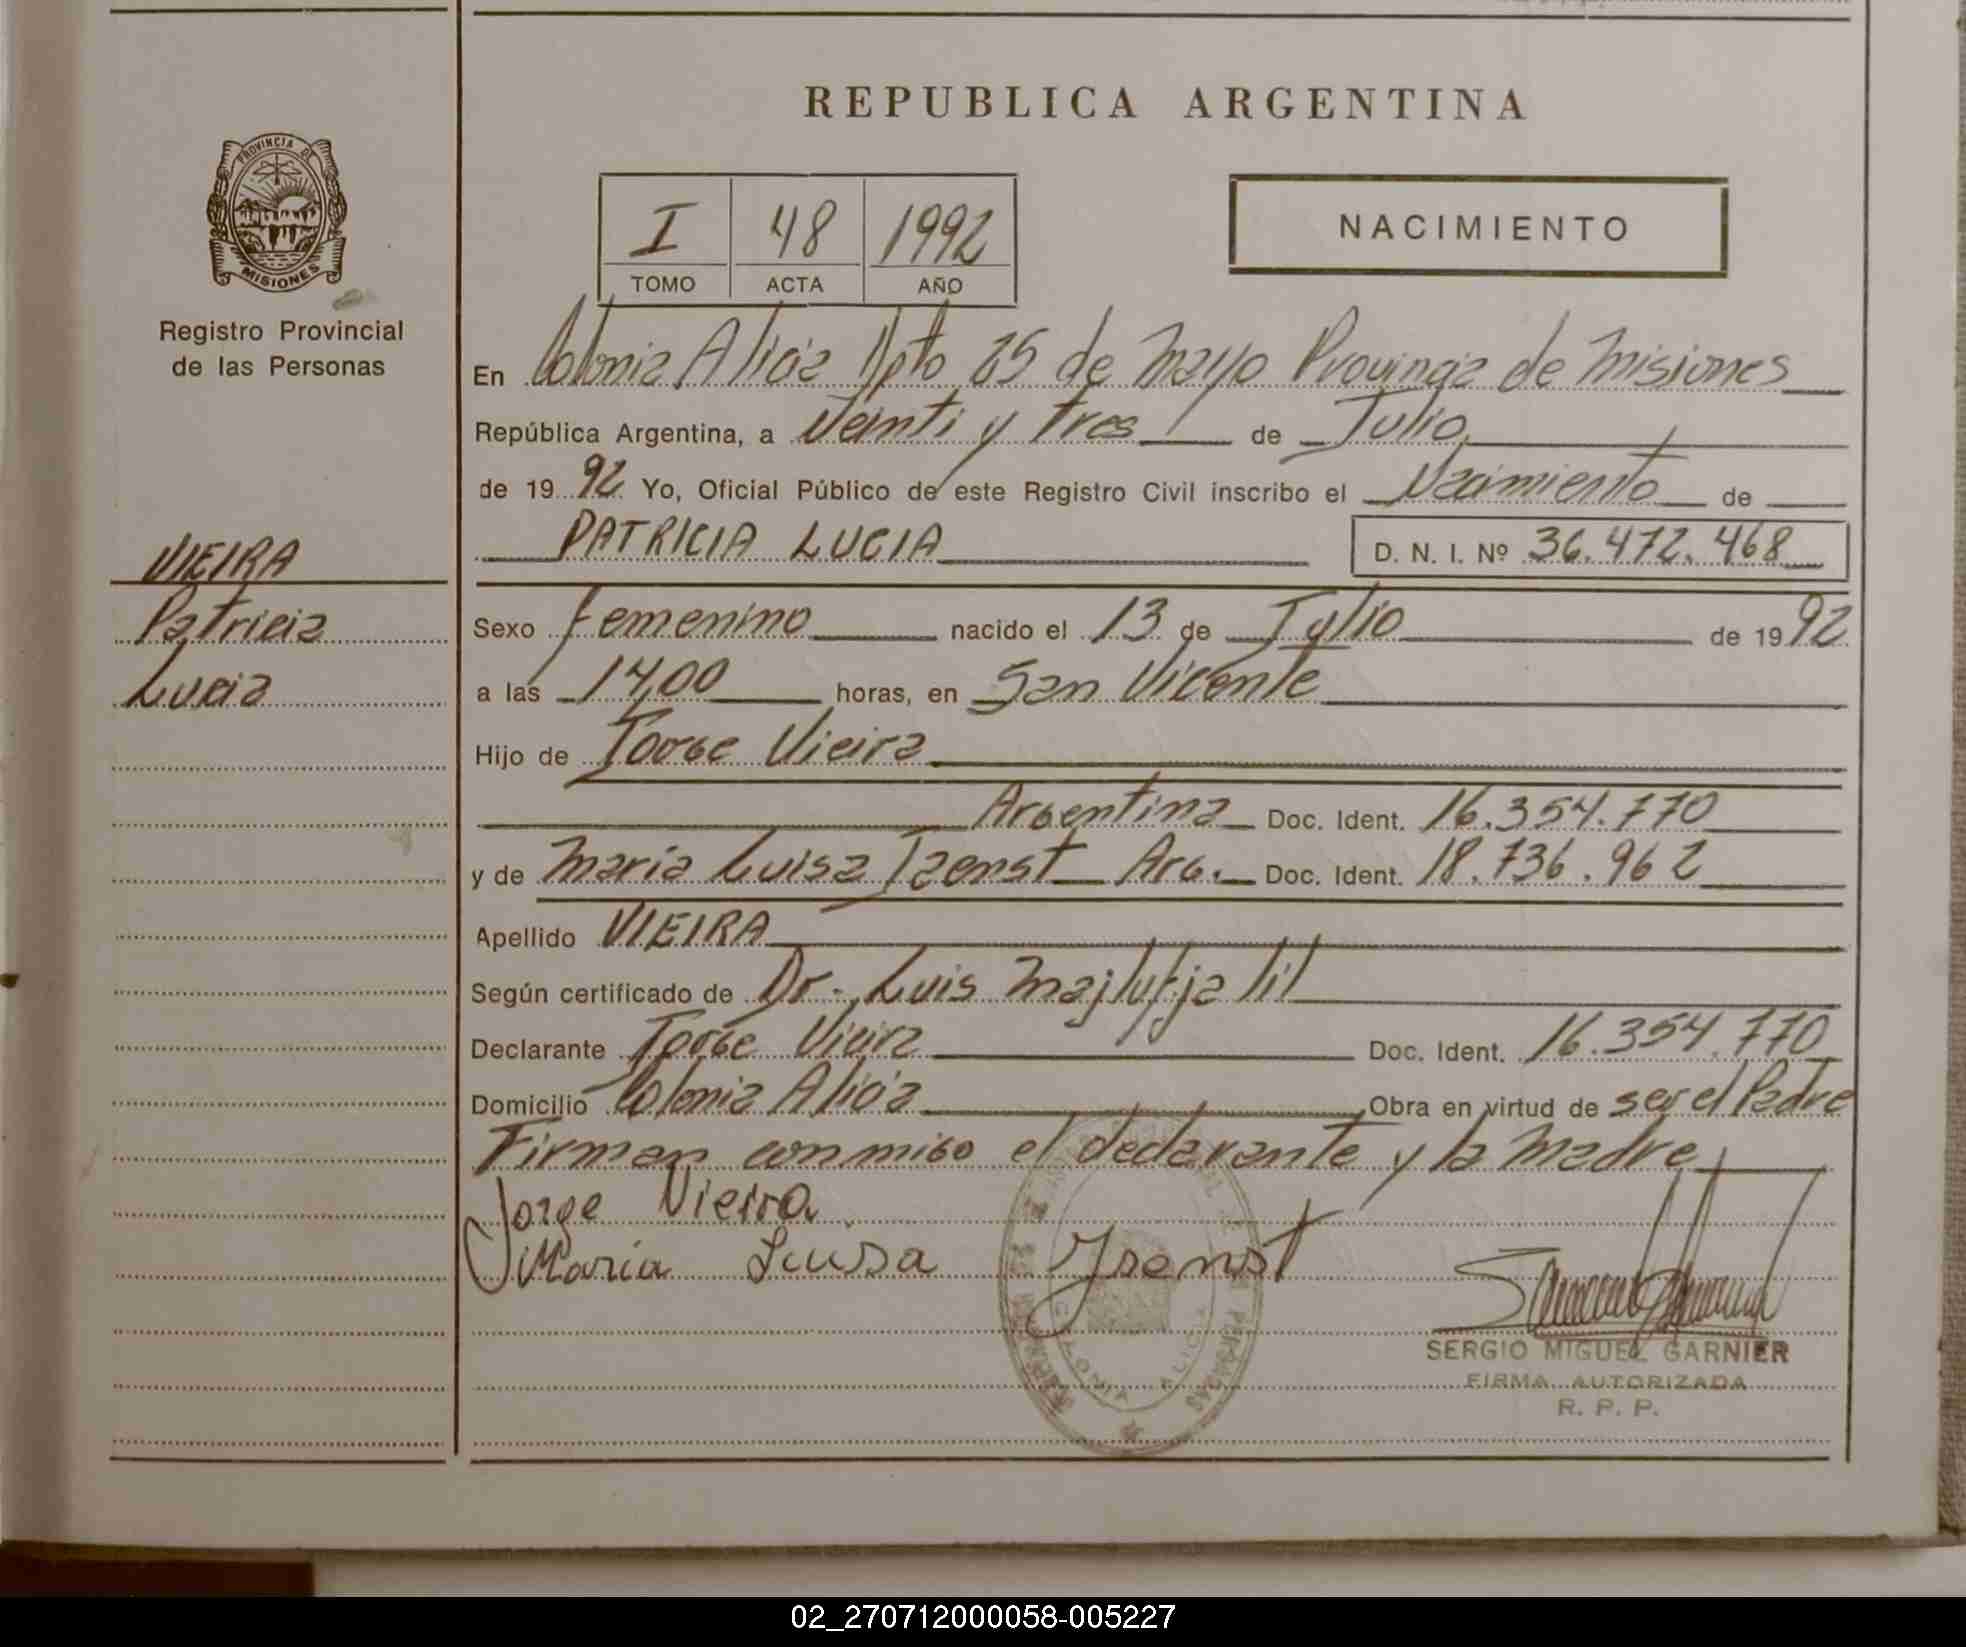 REPUBLICA ARGENTINA
PROVINCIA DE
MISIONES
Registro Provincial
de las Personas
I 48 1992
TOMO ACTA AÑO
NACIMIENTO
En Colonia Alicia Dpto 25 de Mayo Provincia de Misiones
República Argentina, a Veinti y tres de Julio
de 19 92 Yo, Oficial Público de este Registro Civil inscribo el Nacimiento de
PATRICIA LUCIA D. N. I. Nº 36.472.468
VIEIRA
Patricia
Lucia
Sexo femenino nacido el 13 de Julio de 19 92
a las 14,00 horas, en San Vicente
Hijo de Jorge Vieira
Argentina Doc. Ident. 16.354.770
y de Maria Luisa Isenst Arg. Doc. Ident. 18.736.962
Apellido VIEIRA
Según certificado de Dr. Luis Majluf jalil
Declarante Jorge Vieira Doc. Ident. 16.354.770
Domicilio Colonia Alicia Obra en virtud de ser el Padre
Firman conmigo el declarante y la Madre
Jorge Vieira
Maria Luisa Isenst
COLONIA ALICIA
SERGIO MIGUEL GARNIER
FIRMA AUTORIZADA
R. P. P.
02_270712000058-005227